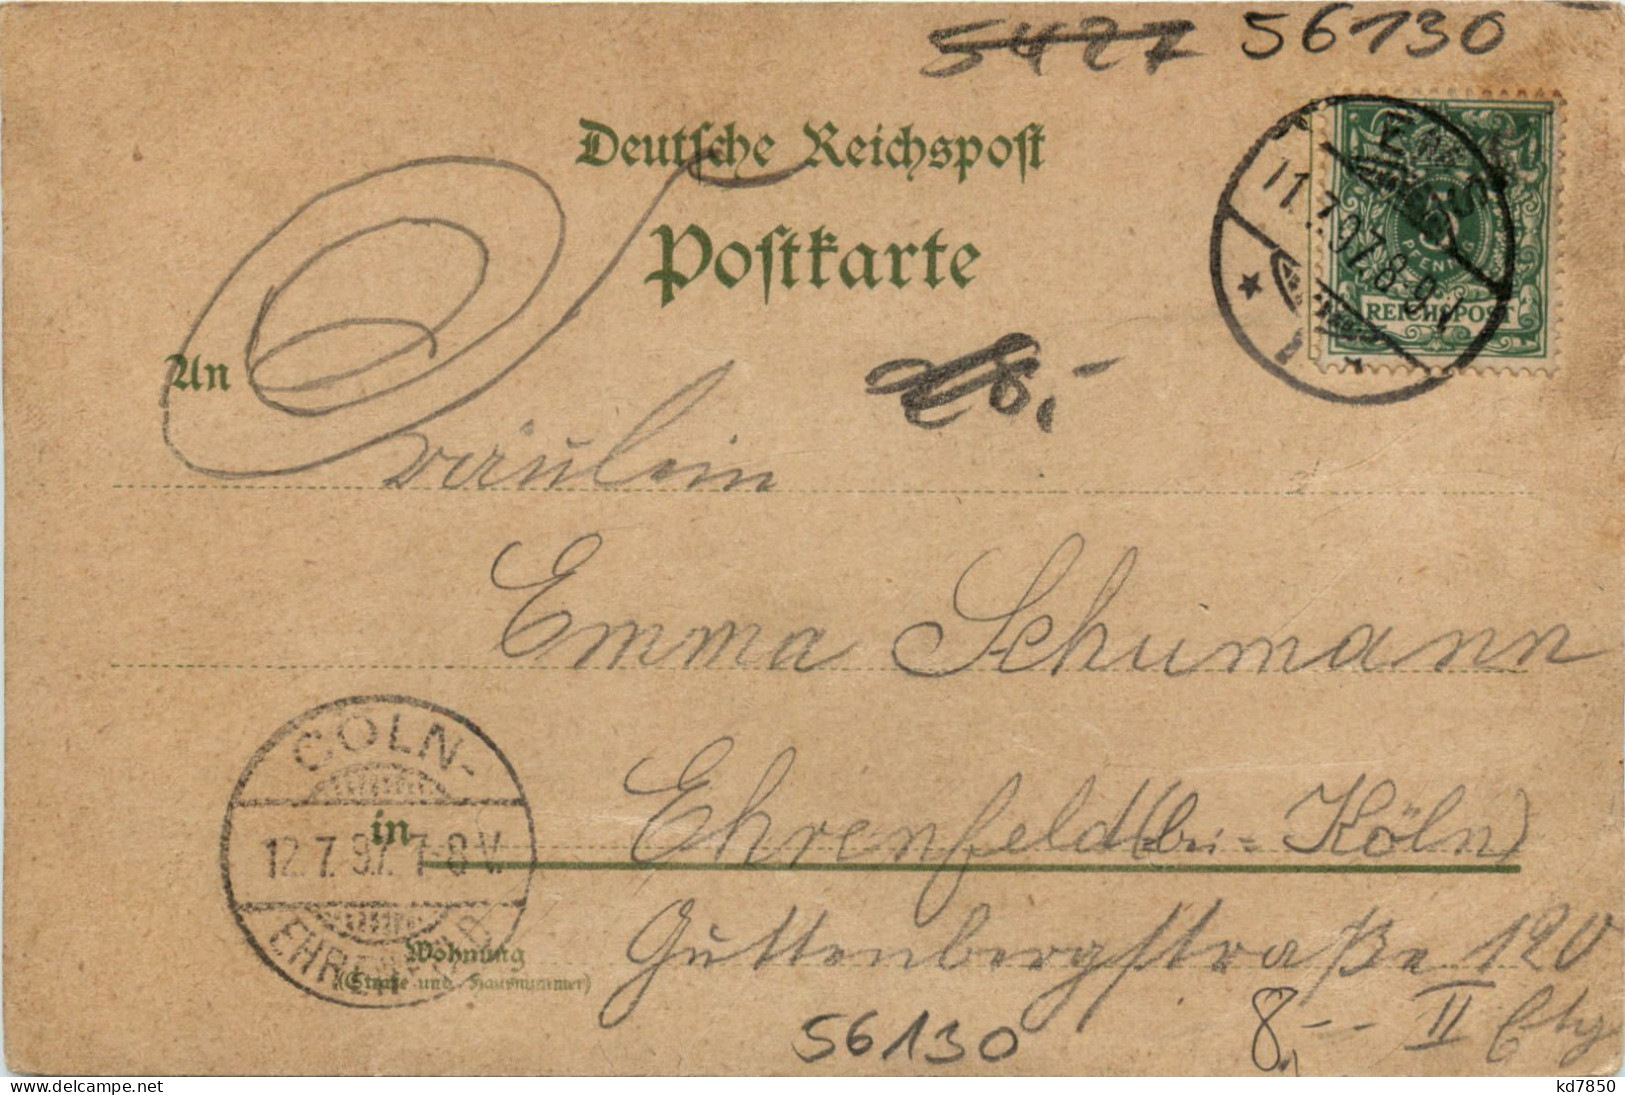 5427 56130
Deutsche Reichspost
Postkarte
EMS
11.7.97.8-9V
PFENNIG
REICHSPOST
8,-
An
Fräulein
Emma Schumann
CÖLN-
12.7.97.7-8V.
EHRENFELD
in
Ehrenfeld (bei=Köln)
Wohnung
(Straße und Hausnummer)
Guttenbergstraße 120
II Etg
56130
8,--
kd7850